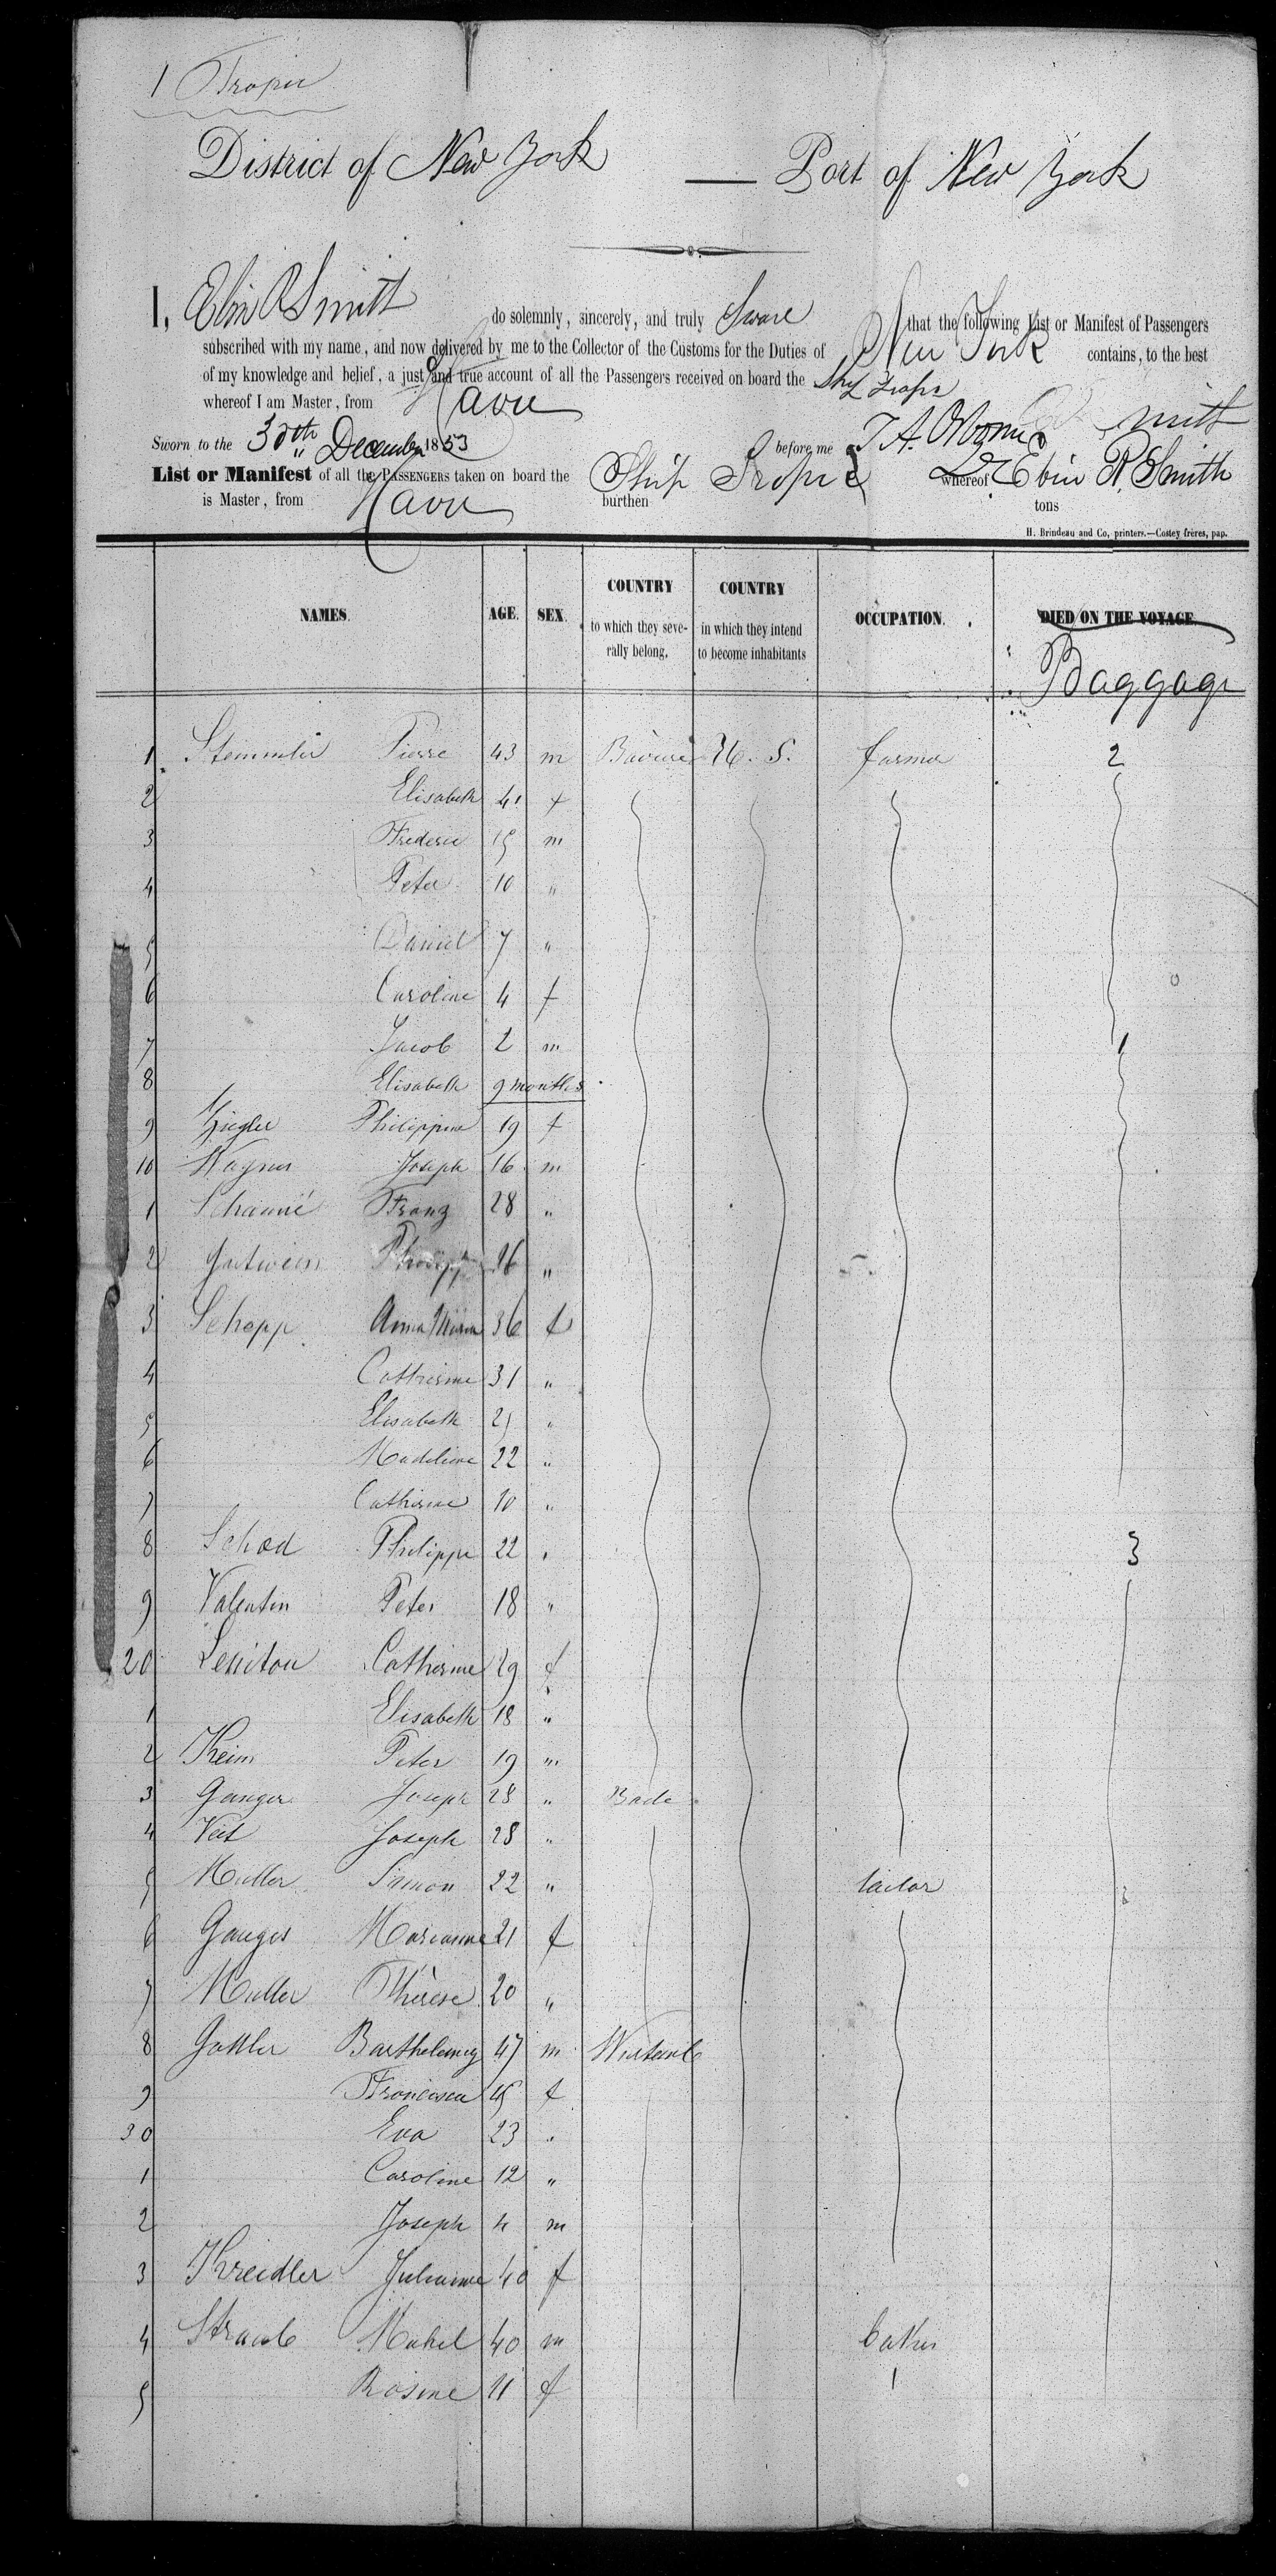 1 Tropic
District of New York — Port of New York
I, Ebin R Smith do solemnly, sincerely, and truly Sware that the following List or Manifest of Passengers
subscribed with my name, and now delivered by me to the Collector of the Customs for the Duties of New York contains, to the best
of my knowledge and belief, a just and true account of all the Passengers received on board the Ship Tropic
whereof I am Master, from Havre
Sworn to the 30th December 1853 before me T. A. Osborne Smith
List or Manifest of all the PASSENGERS taken on board the Ship Tropic whereof Ebin R. Smith
is Master, from Havre burthen tons
H. Brindeau and Co, printers.—Costey frères, pap.
NAMES. AGE. SEX. COUNTRY to which they severally belong. COUNTRY in which they intend to become inhabitants OCCUPATION. DIED ON THE VOYAGE.
Baggage
1 Stemmler Pierre 43 m Baviere U. S. farmer 2
2 Elisabeth 41 f
3 Frederic 15 m
4 Peter 10 "
5 Daniel 7 "
6 Caroline 4 f
7 Jacob 2 m 1
8 Elisabeth 9 months
9 Ziegler Philippine 19 f
10 Wagner Joseph 16 m
1 Schaurié Franz 28 "
2 Gutwein Philipp 26 "
3 Schopp Anna Maria 36 f
4 Catherine 31 "
5 Elisabeth 25 "
6 Madeleine 22 "
7 Catherine 10 "
8 Schod Philippe 22 " 3
9 Valentin Peter 18 "
20 Catherine 29 f
1 Elisabeth 18 "
2 Keim Peter 19 m
3 Ganger Joseph 28 " Bade
4 Veit Joseph 28 "
5 Muller Simon 22 " tailor
6 Ganges Marianne 21 f
7 Muller Thérèse 20 "
8 Gattler Barthelemy 47 m Wurtemb
9 Francisca 45 f
30 Eva 23 "
1 Caroline 12 "
2 Joseph 4 m
3 Kreidler Julianne 40 f
4 Straub Michel 40 m baker
5 Rosine 11 f 1